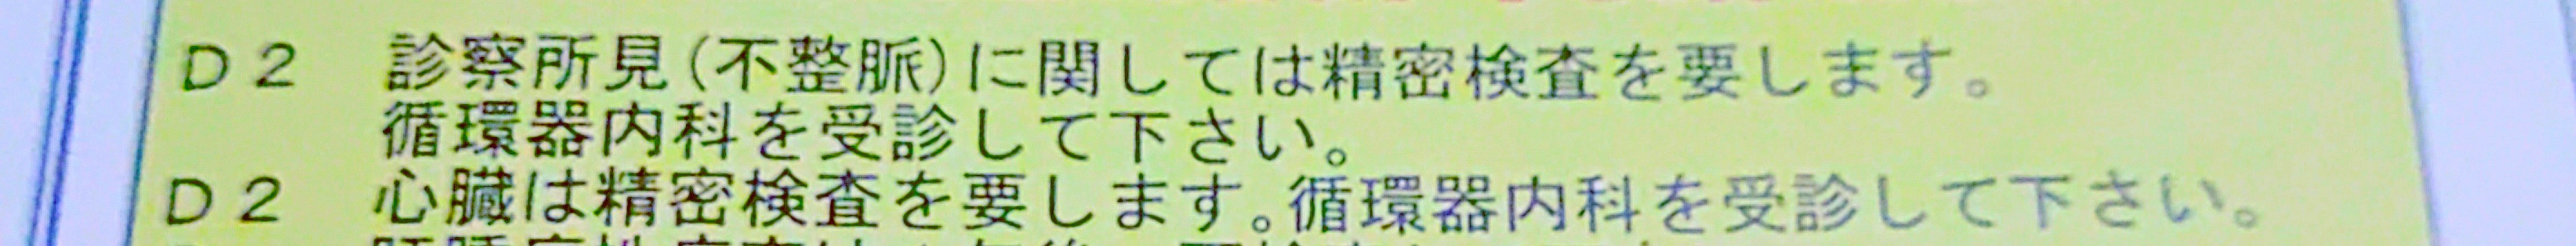 D2 診察所見(不整脈)に関しては精密検査を要します。
循環器内科を受診して下さい。
D2 心臓は精密検査を要します。循環器内科を受診して下さい。